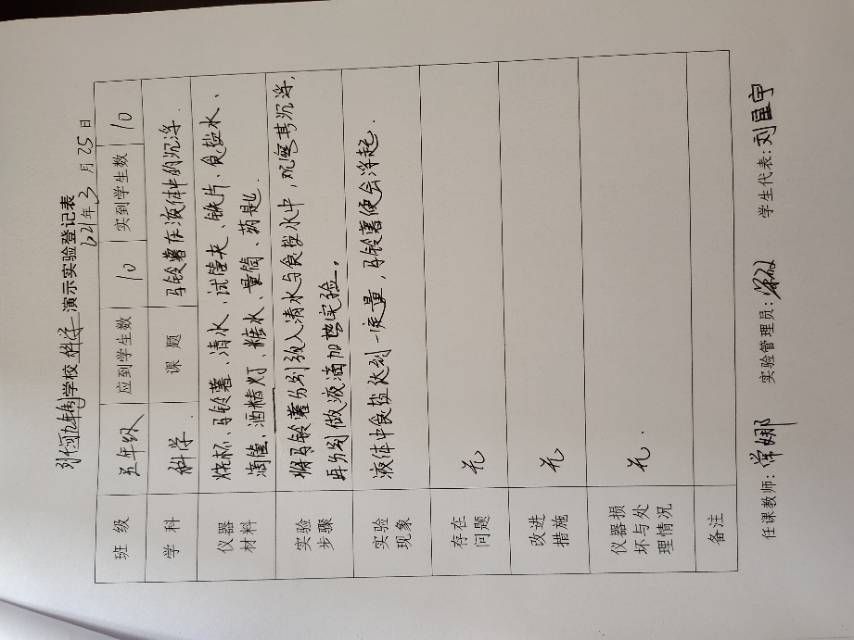 九年制学校科学演示实验登记表
21年3月25日
班级 五年级 应到学生数 10 实到学生数 10
学科 科学 课题 马铃薯在液体中的沉浮.
仪器材料 烧杯、马铃薯、清水、试管夹、铁片、食盐水、
滴管、酒精灯、糖水、量筒、药匙.
实验步骤 将马铃薯分别放入清水与食盐水中,观察其沉浮,
再分别做液滴加热实验。
实验现象 液体中食盐达到一定量,马铃薯便会浮起.
存在问题 无
改进措施 无
仪器损坏与处理情况 无.
备注
任课教师: 娜 实验管理员: 学生代表: 刘宇